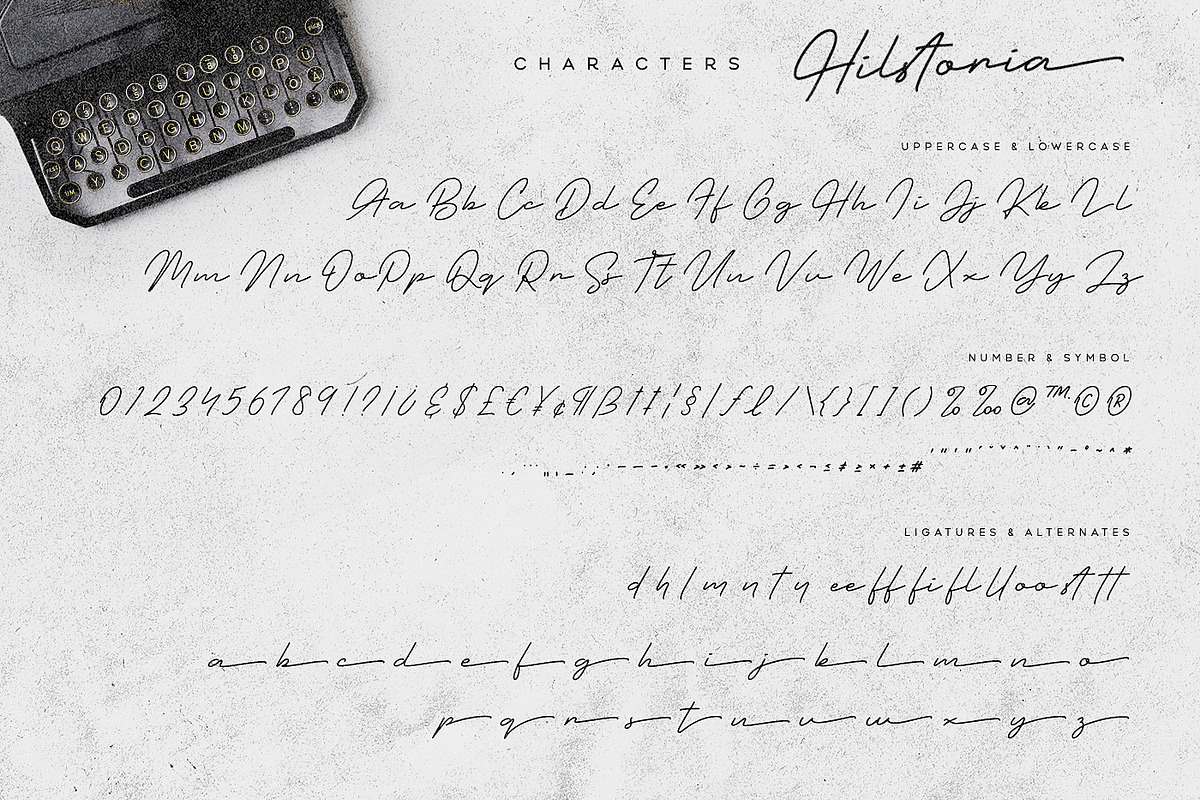 CHARACTERS Hilstonia
UPPERCASE & LOWERCASE
Aa Bb Cc Dd Ee Ff Gg Hh Ii Jj Kk Ll
Mm Nn Oo Pp Qq Rr Ss Tt Uu Vv Ww Xx Yy Zz
NUMBER & SYMBOL
0123456789!?¡¿&$£€¥¢¶ß†‡¦§|ƒℓ/\{}[]()%‰@™©®
LIGATURES & ALTERNATES
d h l m n t y ee ff fi fl ll oo st tt
a b c d e f g h i j k l m n o
p q r s t u v w x y z
Q W E R T Z U I O P Ü
A S D F G H J K L Ö Ä
UM Y X C V B N M UM